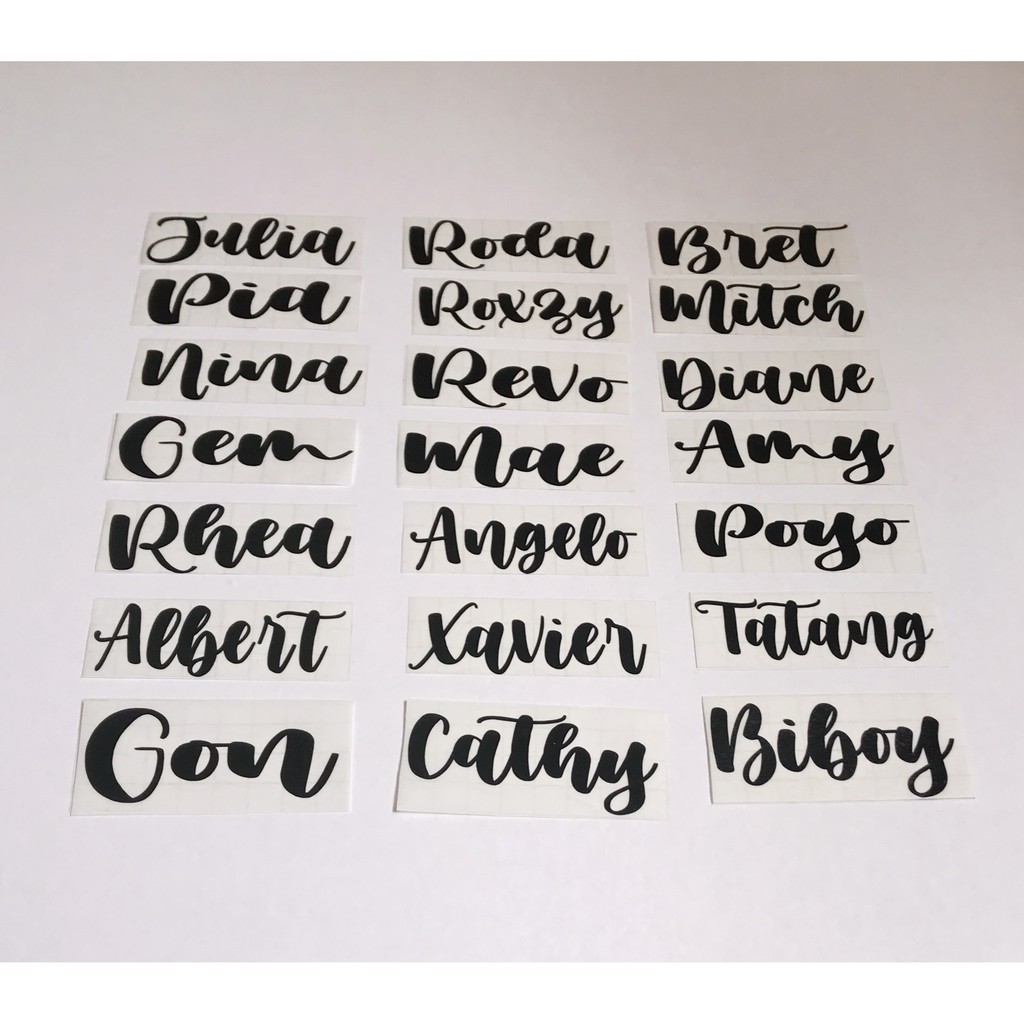 Julia Roda Bret
Pia Roxzy Mitch
Nina Revo Diane
Gem Mae Amy
Rhea Angelo Poyo
Albert Xavier Tatang
Gon Cathy Biboy